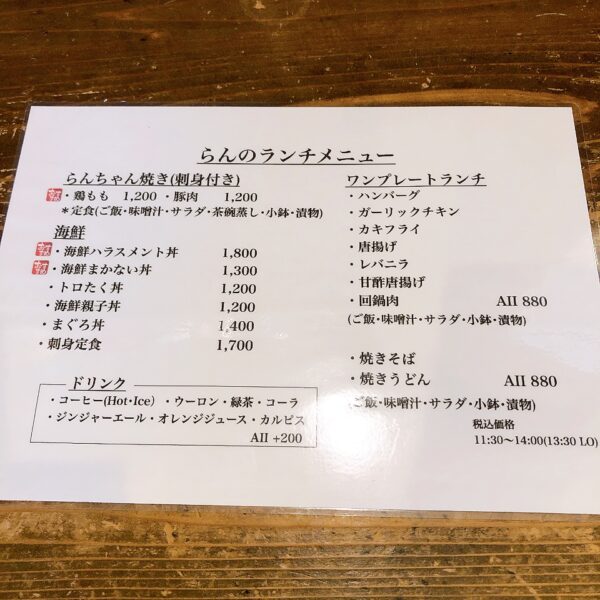 らんのランチメニュー
らんちゃん焼き(刺身付き)
・鶏もも 1,200 ・豚肉 1,200
*定食(ご飯・味噌汁・サラダ・茶碗蒸し・小鉢・漬物)
海鮮
・海鮮ハラスメント丼 1,800
・海鮮まかない丼 1,300
・トロたく丼 1,200
・海鮮親子丼 1,200
・まぐろ丼 1,400
・刺身定食 1,700
ドリンク
・コーヒー(Hot・Ice) ・ウーロン・緑茶・コーラ
・ジンジャーエール・オレンジジュース・カルピス
All +200
ワンプレートランチ
・ハンバーグ
・ガーリックチキン
・カキフライ
・唐揚げ
・レバニラ
・甘酢唐揚げ
・回鍋肉 All 880
(ご飯・味噌汁・サラダ・小鉢・漬物)
・焼きそば
・焼きうどん All 880
(ご飯・味噌汁・サラダ・小鉢・漬物)
税込価格
11:30〜14:00(13:30 LO)